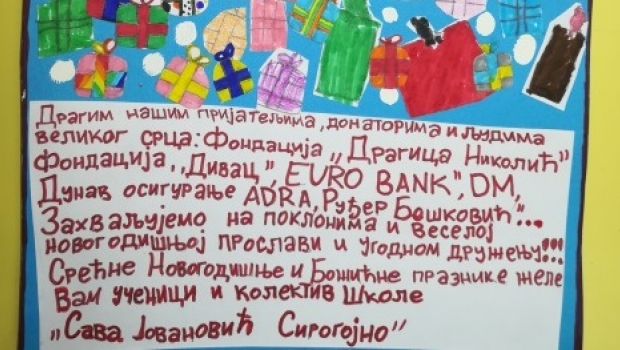 Драгим нашим пријатељима, донаторима и људима
великог срца: Фондација „Драгица Николић"
Фондација „Дивац", EURO BANK", DM,
Дунав осигурање ADRA, Руђер Бошковић"...
Захваљујемо на поклонима и веселој
новогодишњој прослави и угодном дружењу!!!
Срећне Новогодишње и Божићне празнике желе
Вам ученици и колектив Школе
„Сава Јовановић Сирогојно"